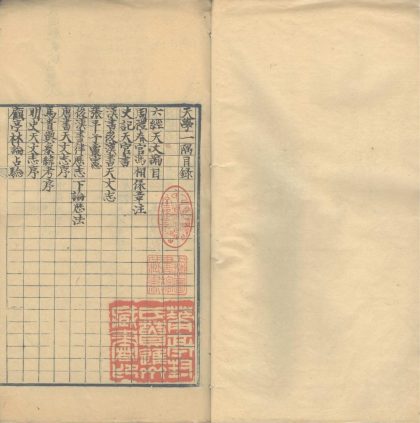 天學一隅目錄
六經天文編目
周禮春官馮相保章注
史記天官書
漢書後漢書天文志
張平子靈憲
後漢書律歷志下論歷法
唐書天文志序
馬貴與象緯考序
明史天文志序
顧亭林論占驗